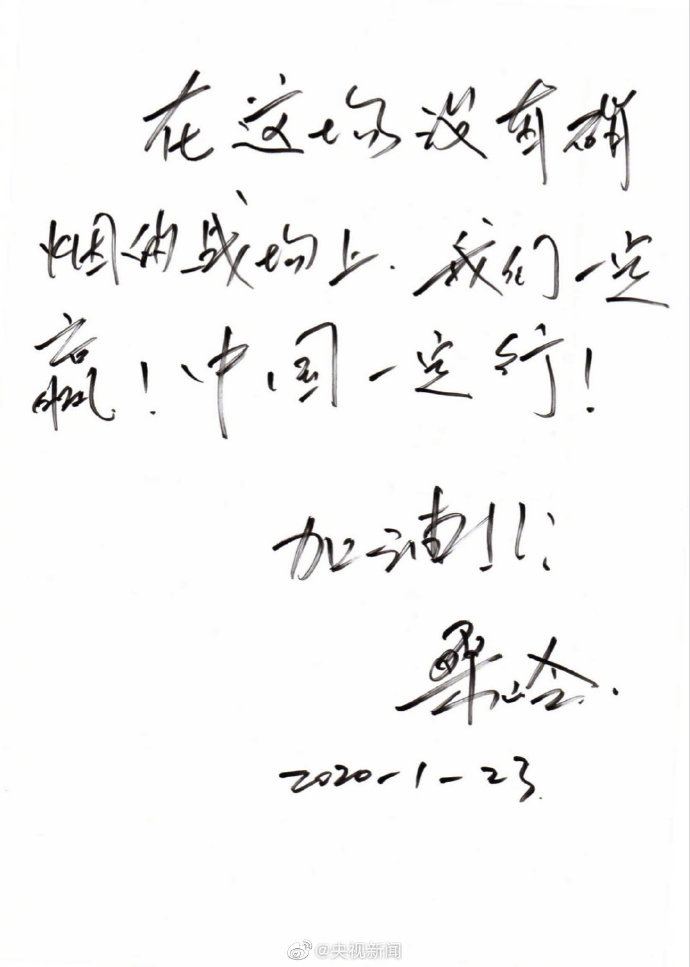 在这场没有硝
烟的战场上，我们一定
赢！中国一定行！
加油！！！
桑岭.
2020-1-23.
@央视新闻